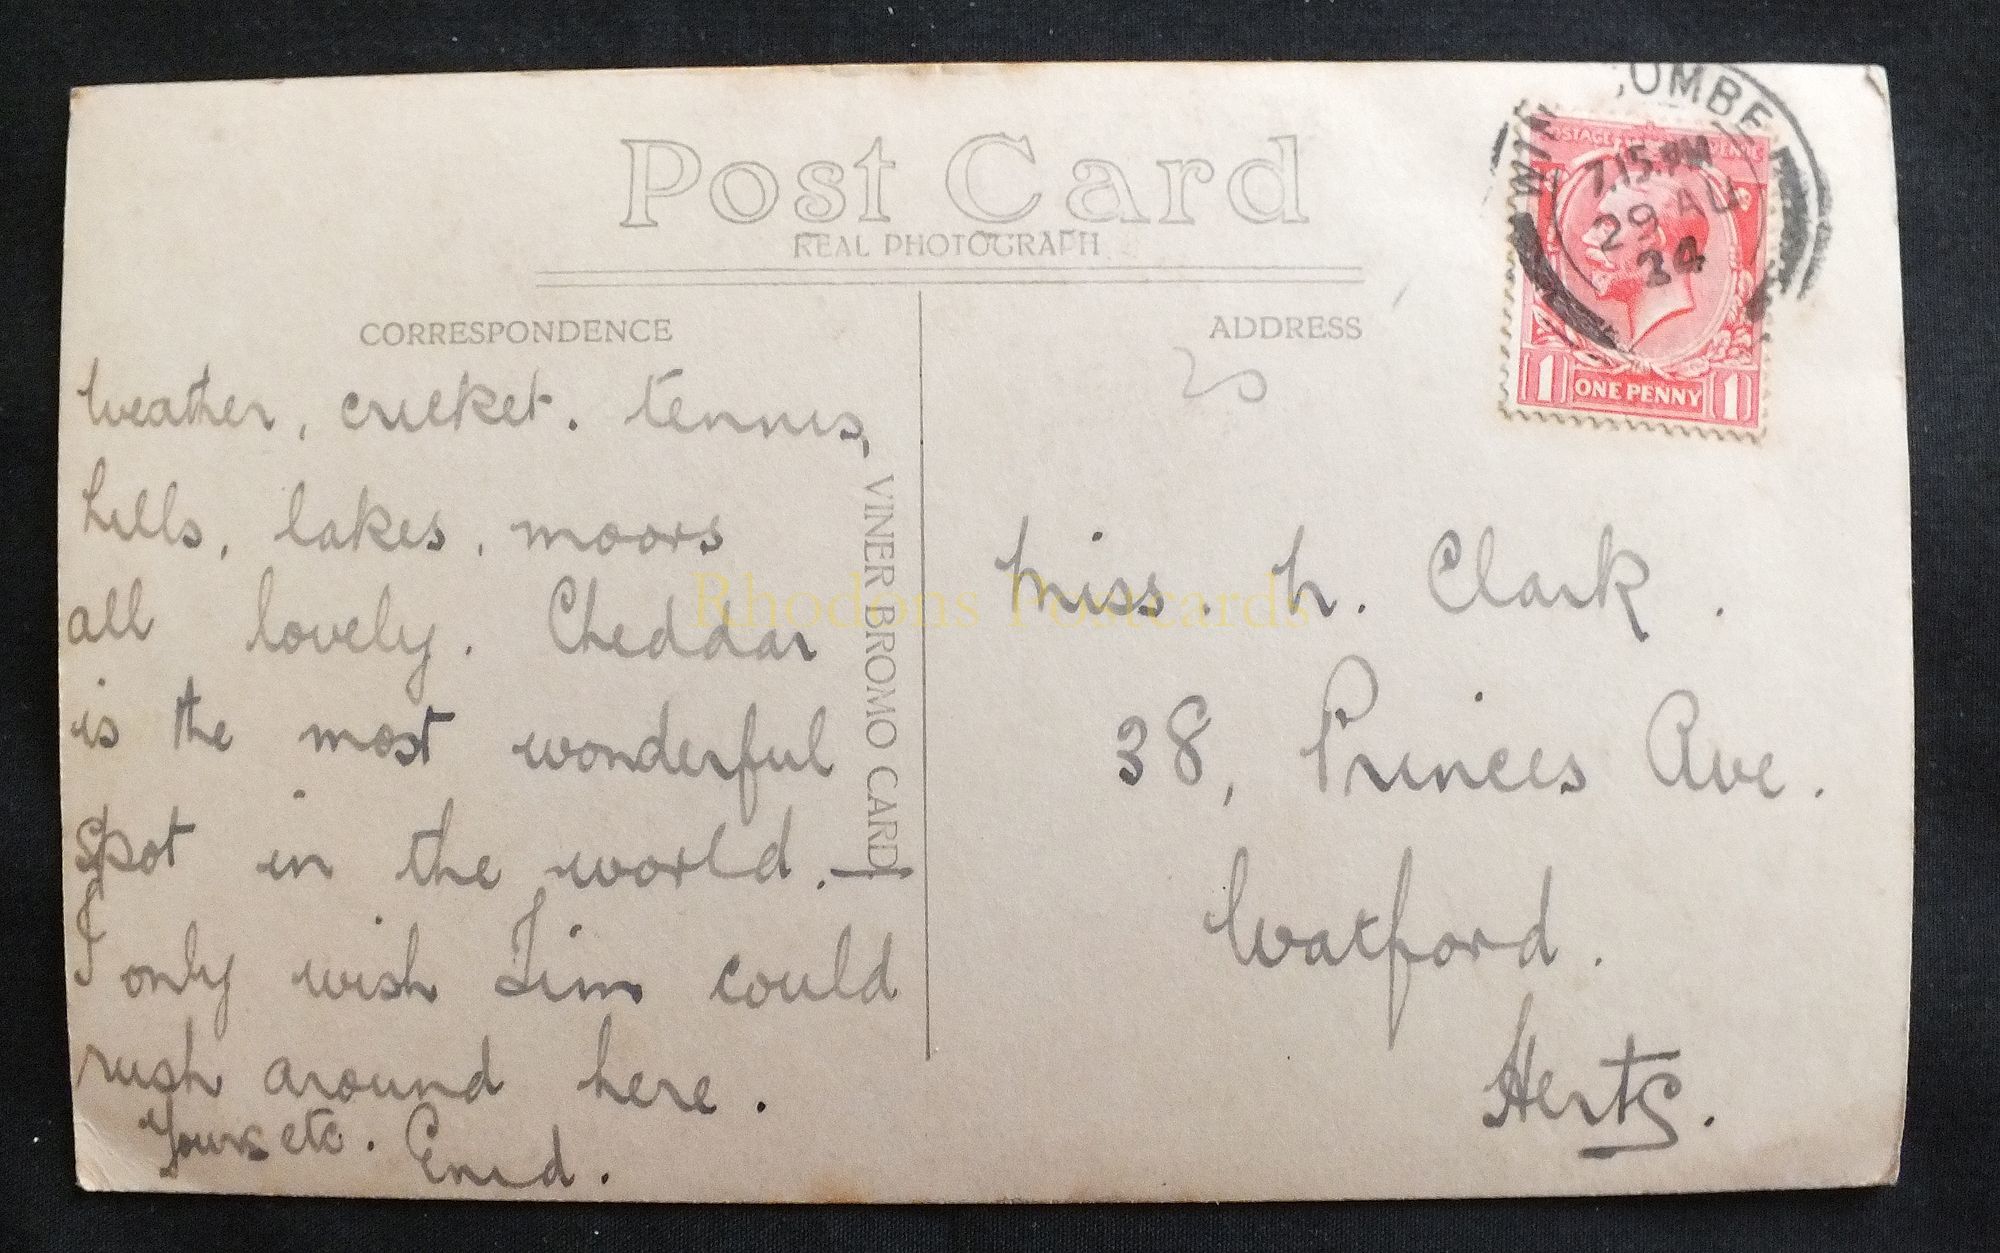 Post Card
REAL PHOTOGRAPH
CORRESPONDENCE
weather, cricket. tennis,
hills, lakes, moors
all lovely. Cheddar
is the most wonderful
spot in the world. —
I only wish Jim could
rush around here.
Yours etc. Enid.
VINER BROMO CARD
ADDRESS
20
Miss. h. Clark.
38, Princes Ave.
Watford.
Herts.
OMBE
7.15 PM
29 AU
34
POSTAGE
1 ONE PENNY 1
Rhodons Postcards